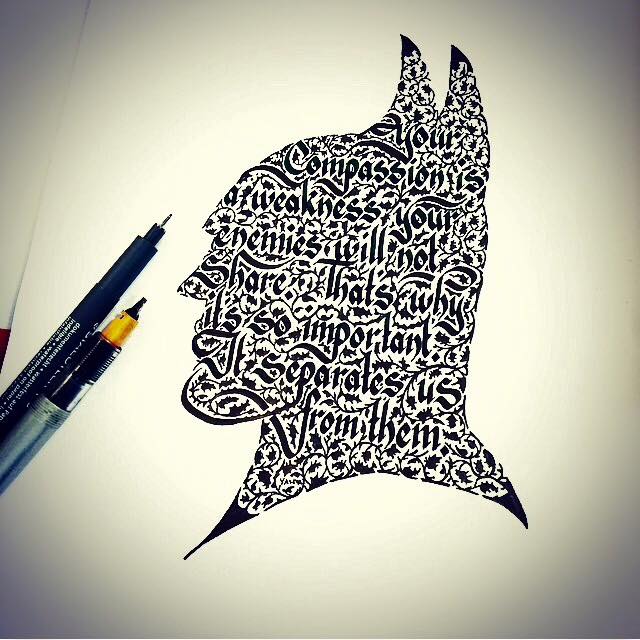 Your
Compassion is
a weakness your
enemies will not
Share. Thats why
it's so important.
It separates us
from them